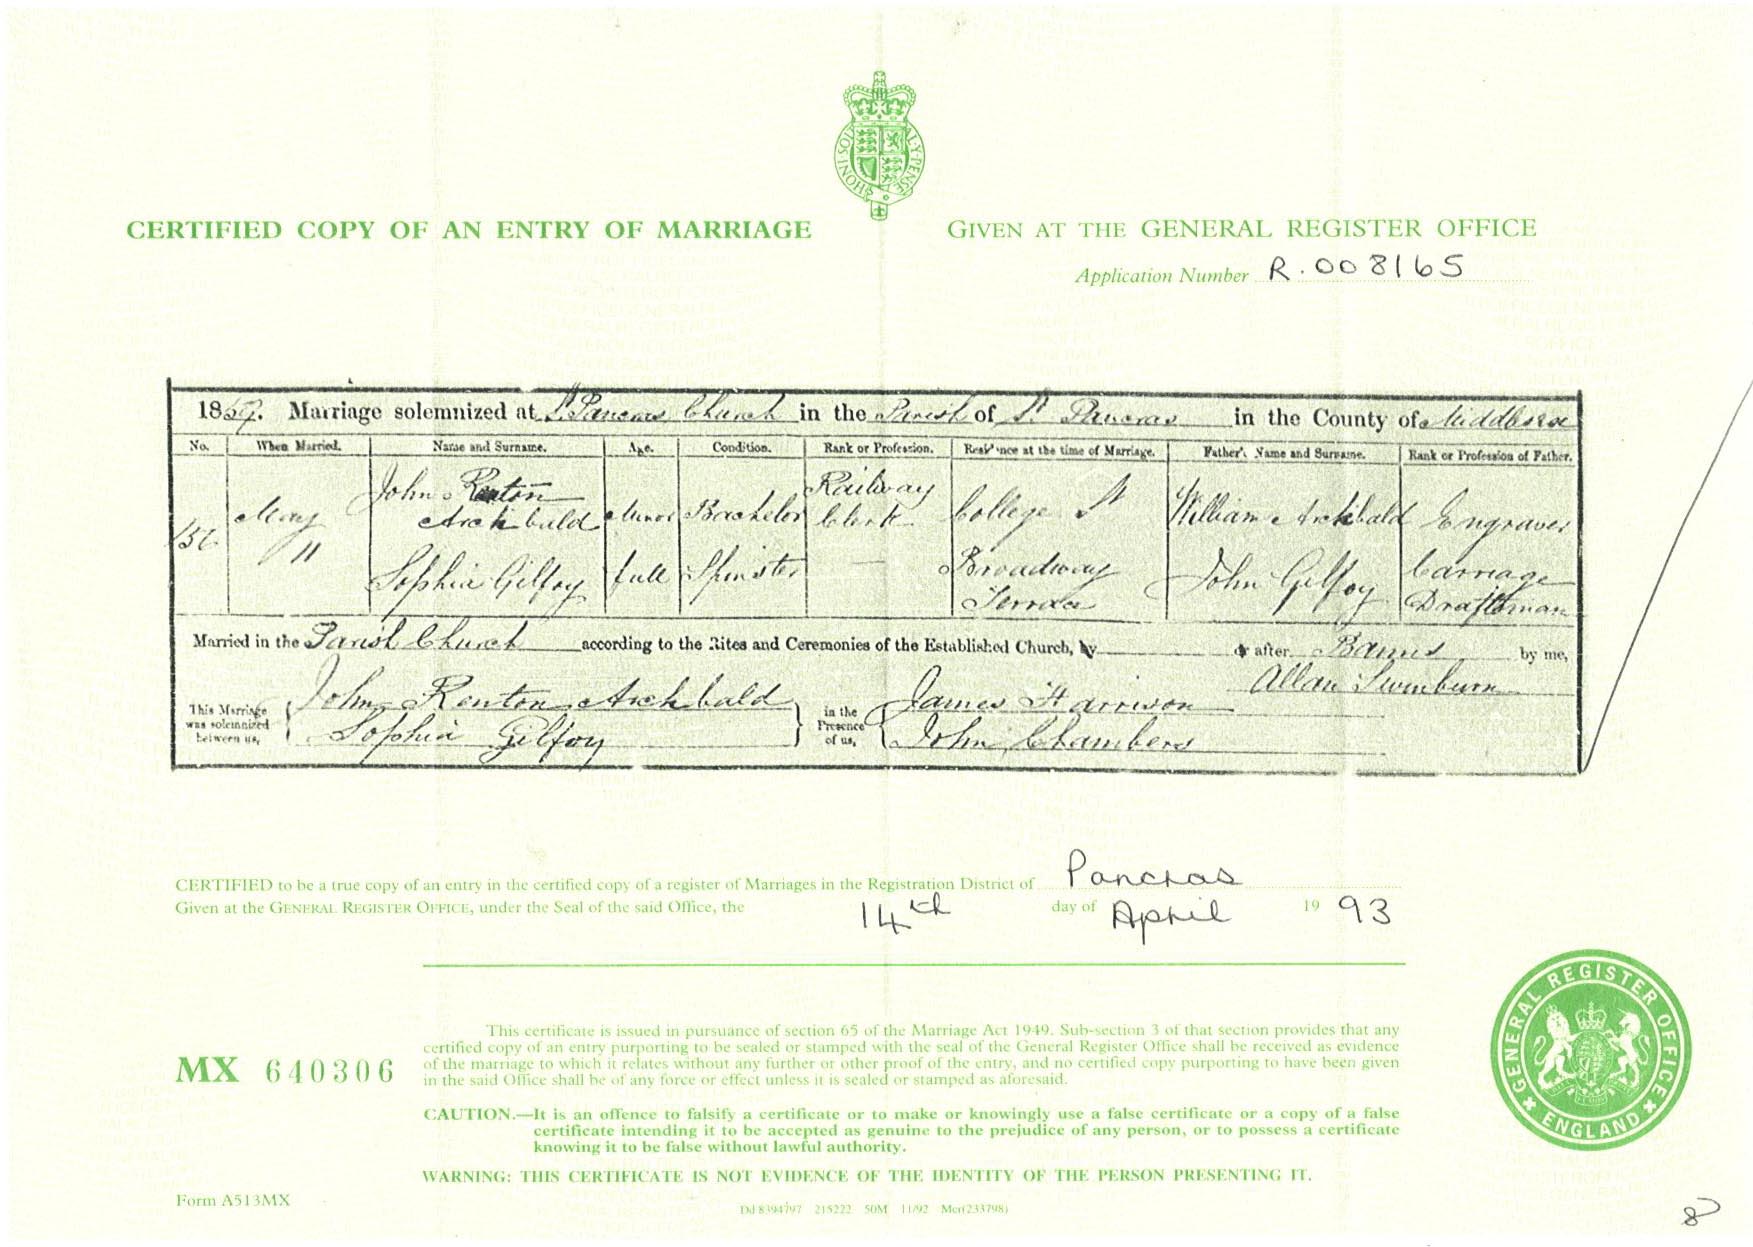 HONI SOIT QUI MAL Y PENSE
CERTIFIED COPY OF AN ENTRY OF MARRIAGE
GIVEN AT THE GENERAL REGISTER OFFICE
Application Number R.008165
1859. Marriage solemnized at St. Pancras Church in the Parish of St. Pancras in the County of Middlesex
No. When Married. Name and Surname. Age. Condition. Rank or Profession. Residence at the time of Marriage. Father's Name and Surname. Rank or Profession of Father.
156 May 11 John Renton Archbald Minor Bachelor Railway Clerk College St William Archibald Engraver
Sophia Gilfoy full Spinster — Broadway Terrace John Gilfoy Carriage Draftsman
Married in the Parish Church according to the Rites and Ceremonies of the Established Church, by or after Banns by me,
Allan Swinburn
This Marriage was solemnized between us, John Renton Archbald Sophia Gilfoy in the Presence of us, James Harrison John Chambers
CERTIFIED to be a true copy of an entry in the certified copy of a register of Marriages in the Registration District of Pancras
Given at the GENERAL REGISTER OFFICE, under the Seal of the said Office, the 14th day of April 1993
This certificate is issued in pursuance of section 65 of the Marriage Act 1949. Sub-section 3 of that section provides that any
certified copy of an entry purporting to be sealed or stamped with the seal of the General Register Office shall be received as evidence
of the marriage to which it relates without any further or other proof of the entry, and no certified copy purporting to have been given
in the said Office shall be of any force or effect unless it is sealed or stamped as aforesaid.
MX 640306
CAUTION.—It is an offence to falsify a certificate or to make or knowingly use a false certificate or a copy of a false
certificate intending it to be accepted as genuine to the prejudice of any person, or to possess a certificate
knowing it to be false without lawful authority.
WARNING: THIS CERTIFICATE IS NOT EVIDENCE OF THE IDENTITY OF THE PERSON PRESENTING IT.
GENERAL REGISTER OFFICE
ENGLAND
Form A513MX
Dd 8394797 215222 50M 11/92 Mcr(233798)
8